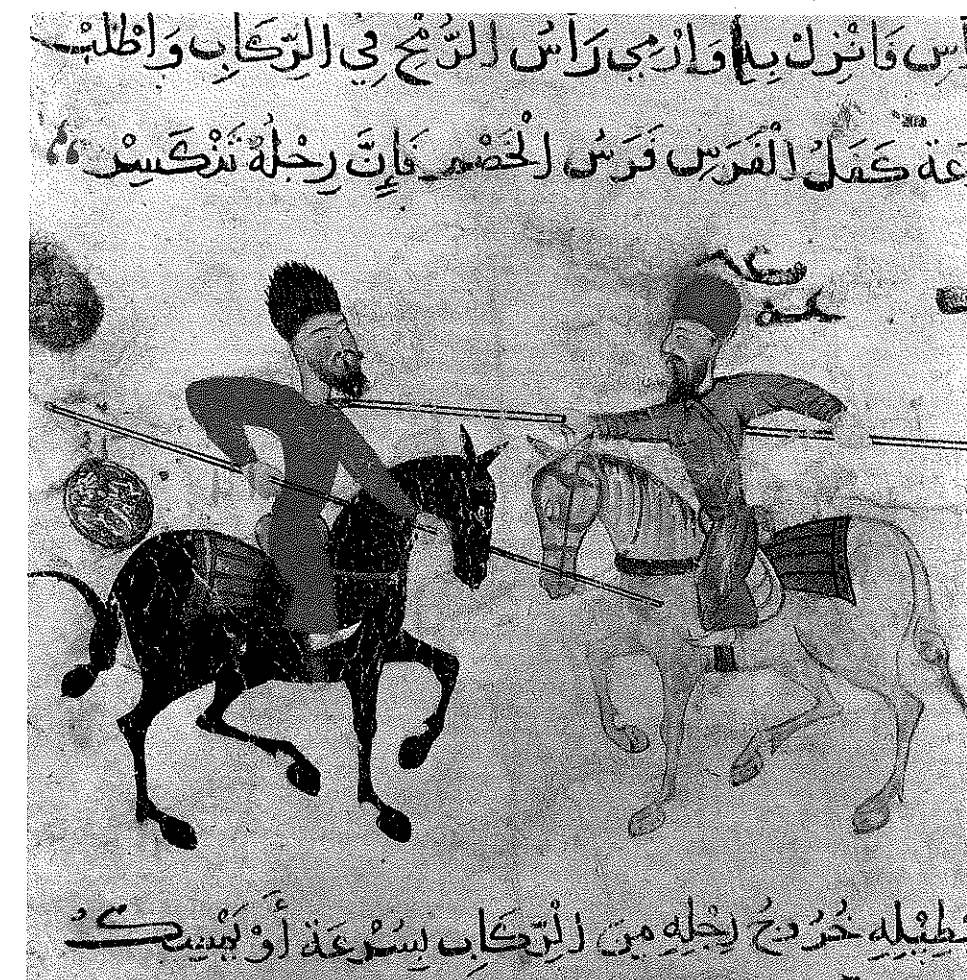 وَانْزِلْ بِهِ وَارْمِي رَاسُ الرُّمْحِ فِي الرِّكَابِ وَاطْلُبْ
كَفَلُ الْفَرَسِ فَرَسُ الْخَصْمِ فَإِنَّ رِجْلَهُ تَنْكَسِرْ
خُرُوجُ رِجْلِهِ مِنَ الرِّكَابِ بِسُرْعَة أَوْ